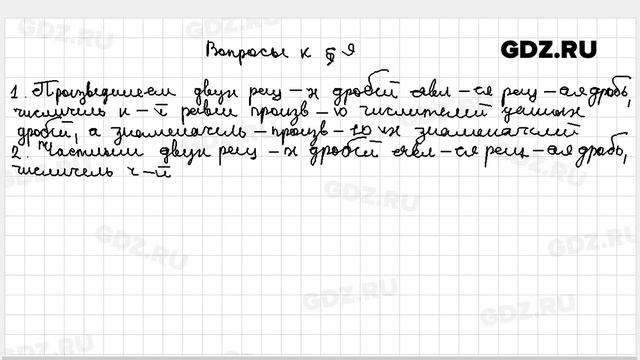 Вопросы к § 9
GDZ.RU
1. Произведением двух рац-х дробей явл-ся рац-ая дробь,
числитель к-й равен произв-ю числителей данных
дробей, а знаменатель - произв-ю их знаменателей
2. Частным двух рац-х дробей явл-ся рац-ая дробь,
числитель к-й